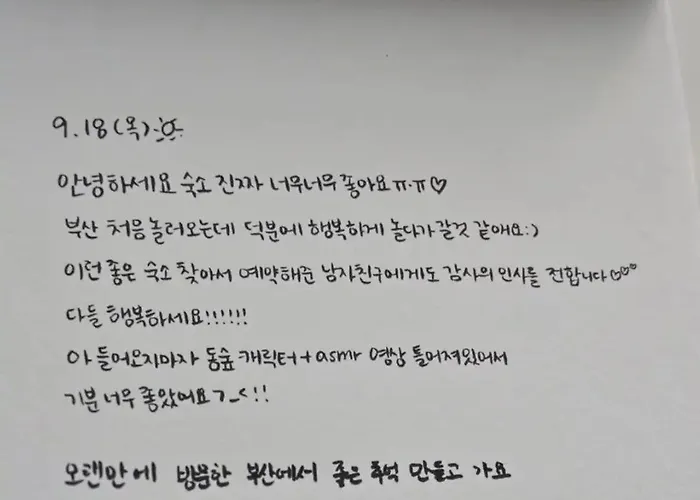 9.18(목)☼
안녕하세요 숙소 진짜 너무너무 좋아요ㅠ.ㅠ♡
부산 처음 놀러오는데 덕분에 행복하게 놀다가갈것 같애요:)
이런 좋은 숙소 찾아서 예약해준 남자친구에게도 감사의 인사를 전합니다♡♡♡
다들 행복하세요!!!!!!
아 들어오자마자 동숲 캐릭터+asmr 영상 틀어져있어서
기분 너무 좋았어요ㄱ_<!!
오랜만에 방문한 부산에서 좋은 추억 만들고 가요